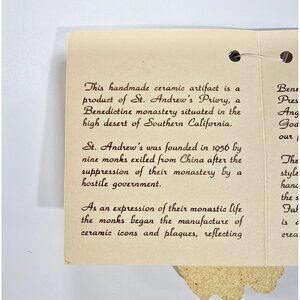 This handmade ceramic artifact is a
product of St. Andrew's Priory, a
Benedictine monastery situated in the
high desert of Southern California.
St. Andrew's was founded in 1956 by
nine monks exiled from China after the
suppression of their monastery by a
hostile government.
As an expression of their monastic life
the monks began the manufacture of
ceramic icons and plaques, reflecting
Bene
Pres
Ang
God
our
The
style
hand
the
Fa
is a
crea